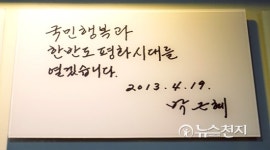 국민행복과
한반도 평화시대를
열겠습니다.
2013. 4. 19.
박근혜
뉴스천지